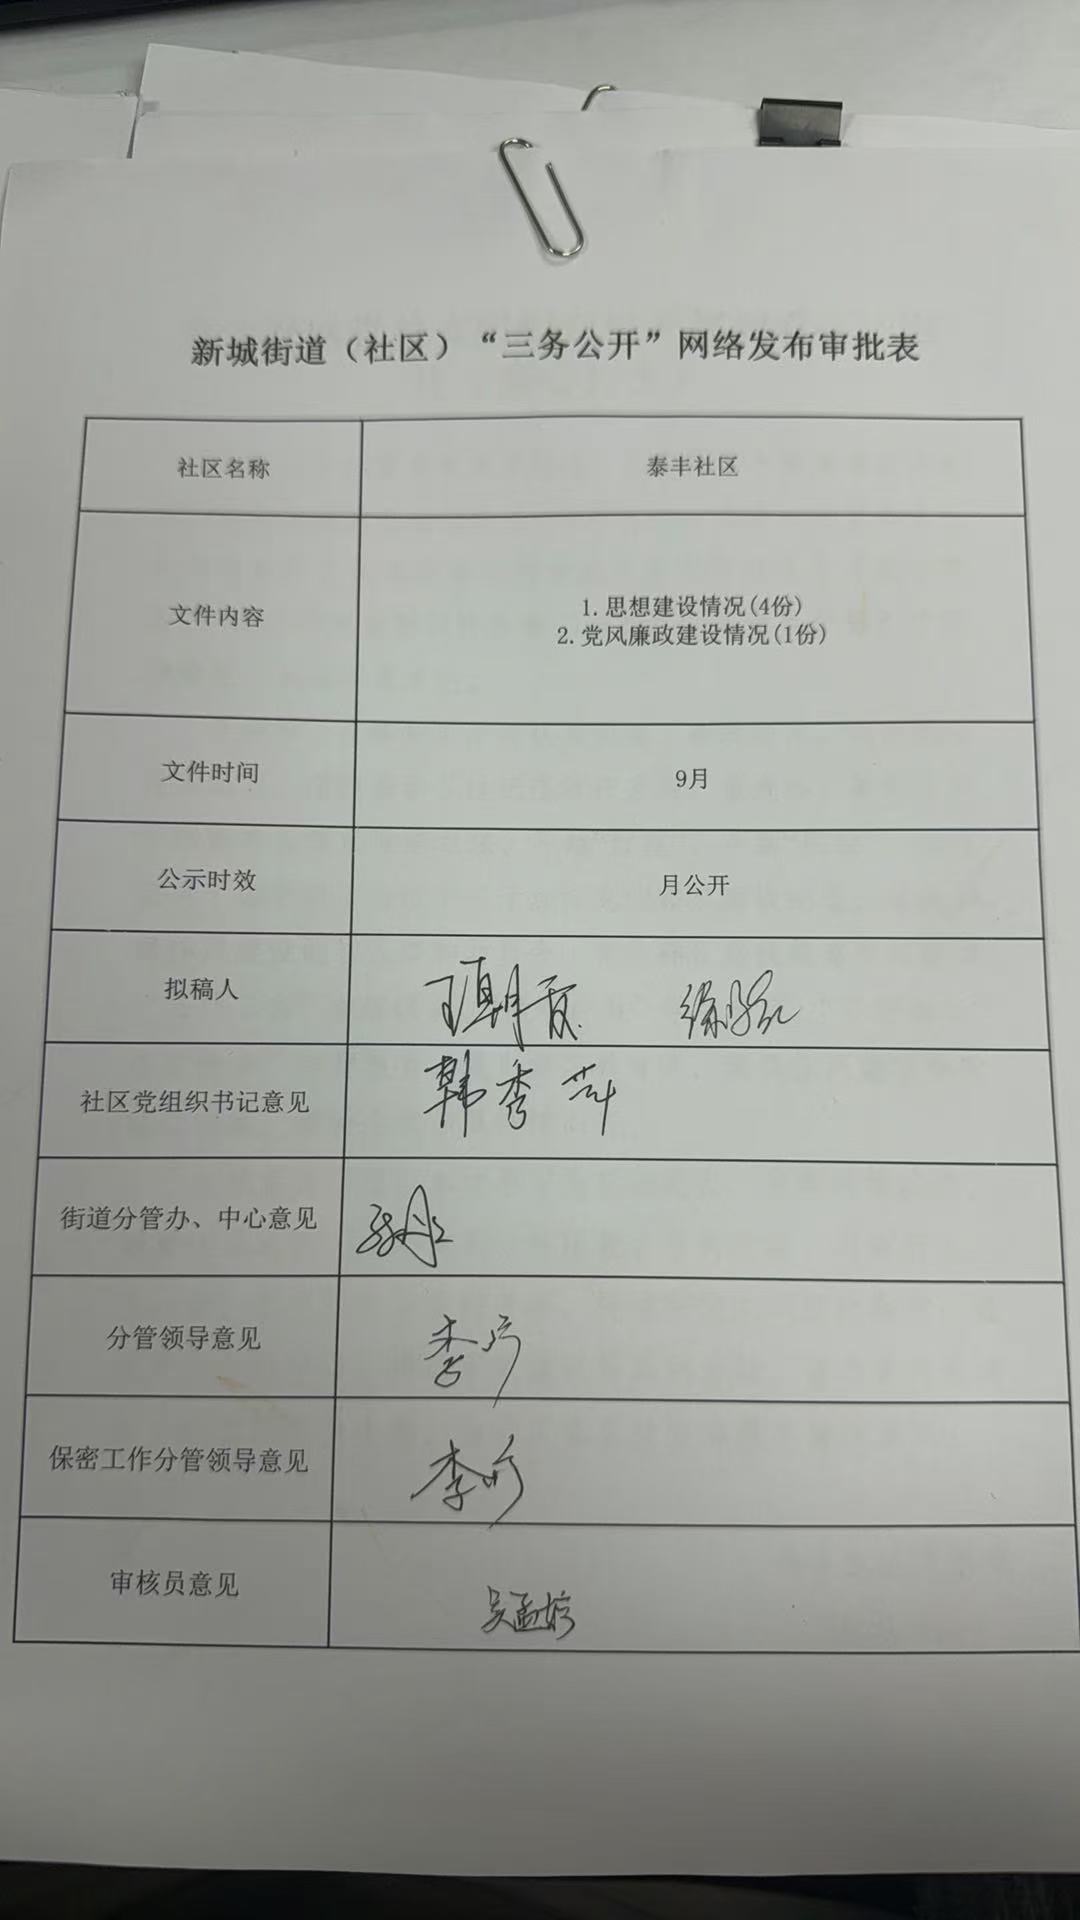 新城街道（社区）“三务公开”网络发布审批表
社区名称
泰丰社区
文件内容
1.思想建设情况(4份)
2.党风廉政建设情况(1份)
文件时间
9月
公示时效
月公开
拟稿人
社区党组织书记意见
韩秀萍
街道分管办、中心意见
分管领导意见
保密工作分管领导意见
审核员意见
吴孟婷